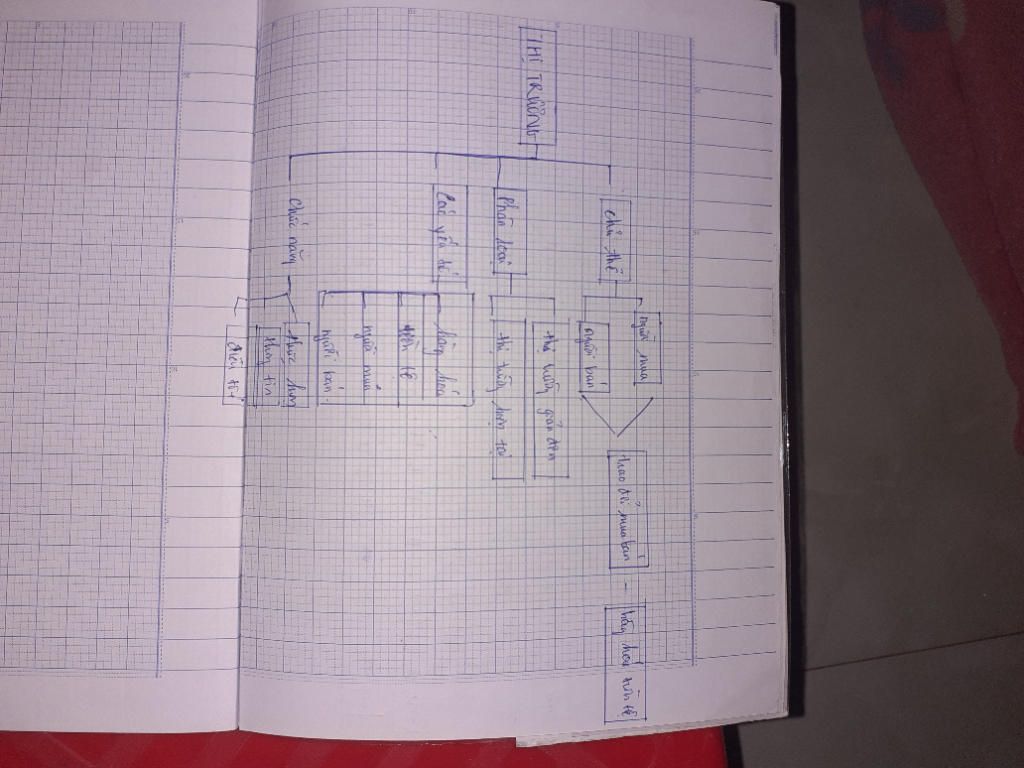 THỊ TRƯỜNG
Chủ thể
người mua
người bán
trao đổi mua bán
hàng hoá tiền tệ
Phân loại
thị trường giản đơn
thị trường hiện đại
Các yếu tố
hàng hoá
tiền tệ
người mua
người bán
Chức năng
thừa nhận
thông tin
điều tiết